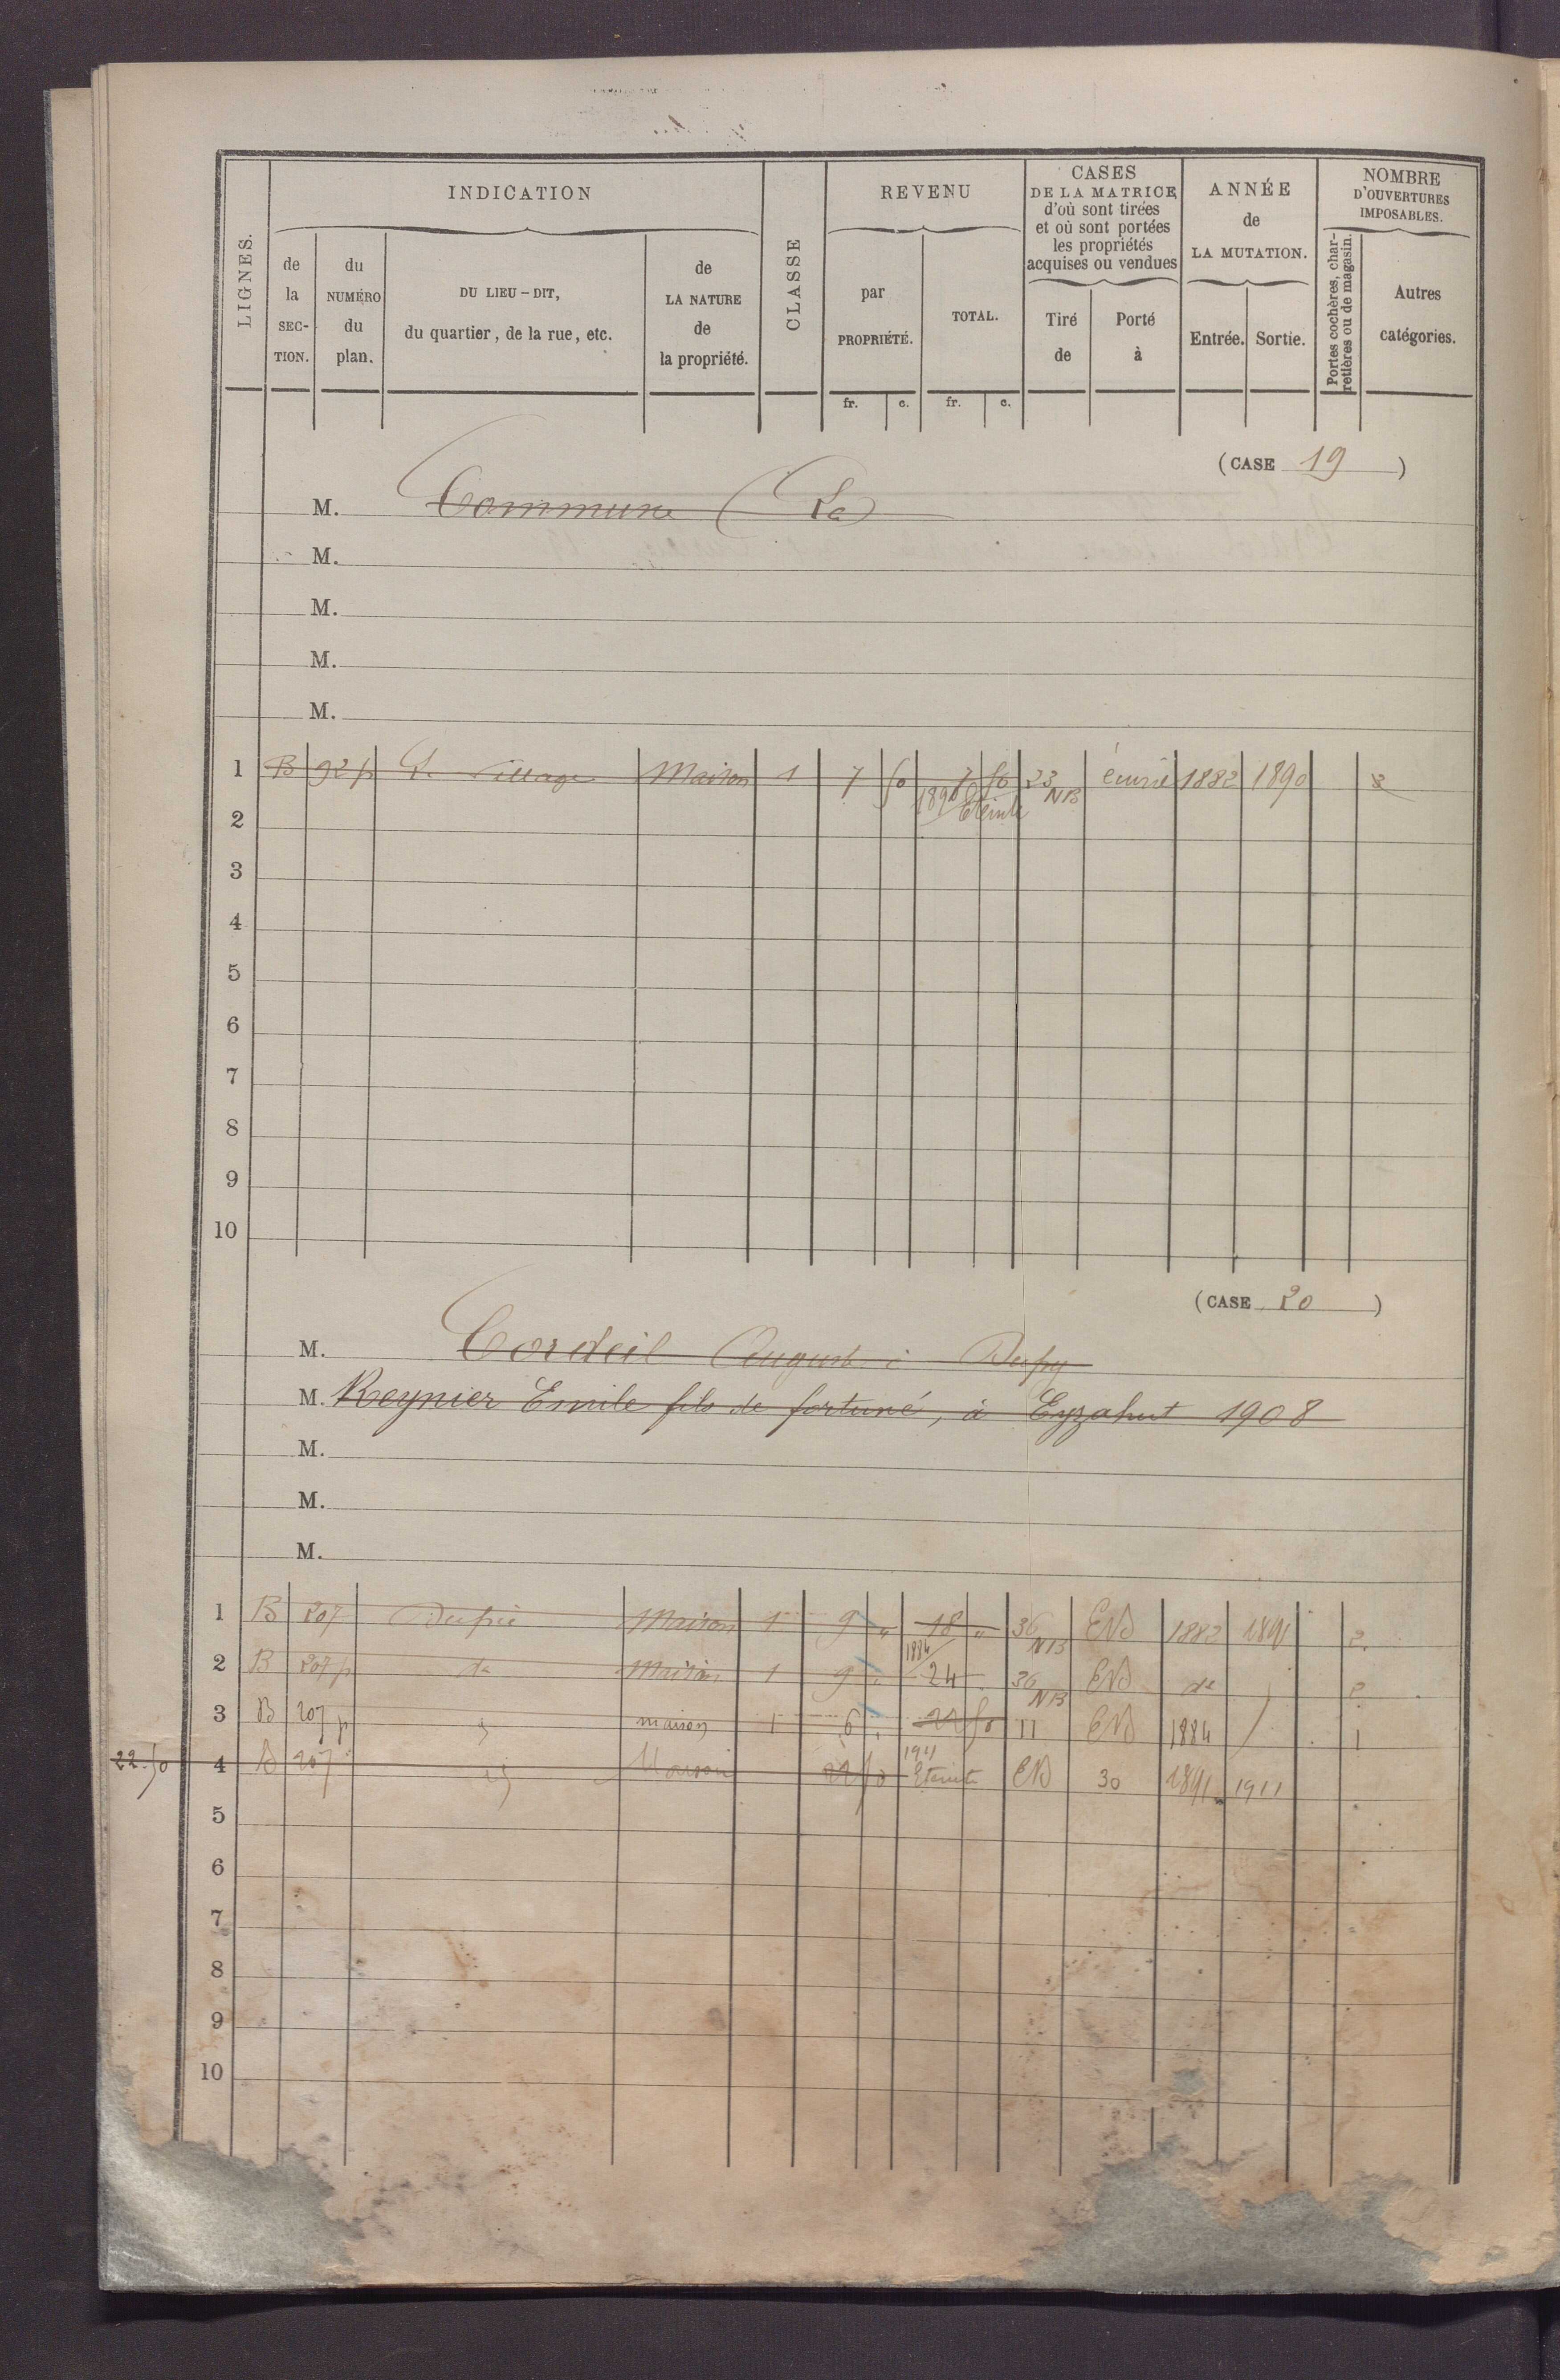 LIGNES.
INDICATION
de la SECTION.
du NUMÉRO du plan.
DU LIEU-DIT, du quartier, de la rue, etc.
de LA NATURE de la propriété.
CLASSE
REVENU
par PROPRIÉTÉ.
TOTAL.
CASES DE LA MATRICE d'où sont tirées et où sont portées les propriétés acquises ou vendues
Tiré de
Porté à
ANNÉE de LA MUTATION.
Entrée.
Sortie.
NOMBRE D'OUVERTURES IMPOSABLES.
Portes cochères, charretières ou de magasin.
Autres catégories.
fr. c. fr. c.
(CASE 19)
M. Commune (La)
M.
M.
M.
M.
1 B 92 p village Maison 1 7 50 7 50 23 NB 1882 1890
1890 Eteinte
2
3
4
5
6
7
8
9
10
(CASE 20)
M. Cordeil Auguste à
M. Reynier Emile fils de fortuné, à Eyzahut 1908
M.
M.
M.
1 B 207 Maison 1 9 " 18 " 36 NB 1882 1891 2
2 B 207 p de Maison 1 9 " 1884 24 36 NB de 2
3 B 207 p maison 1 6 " 22 50 11 1884 1
22.50 4 B 207 Maison 22 50 1911 Eteinte 30 1891 1911
5
6
7
8
9
10